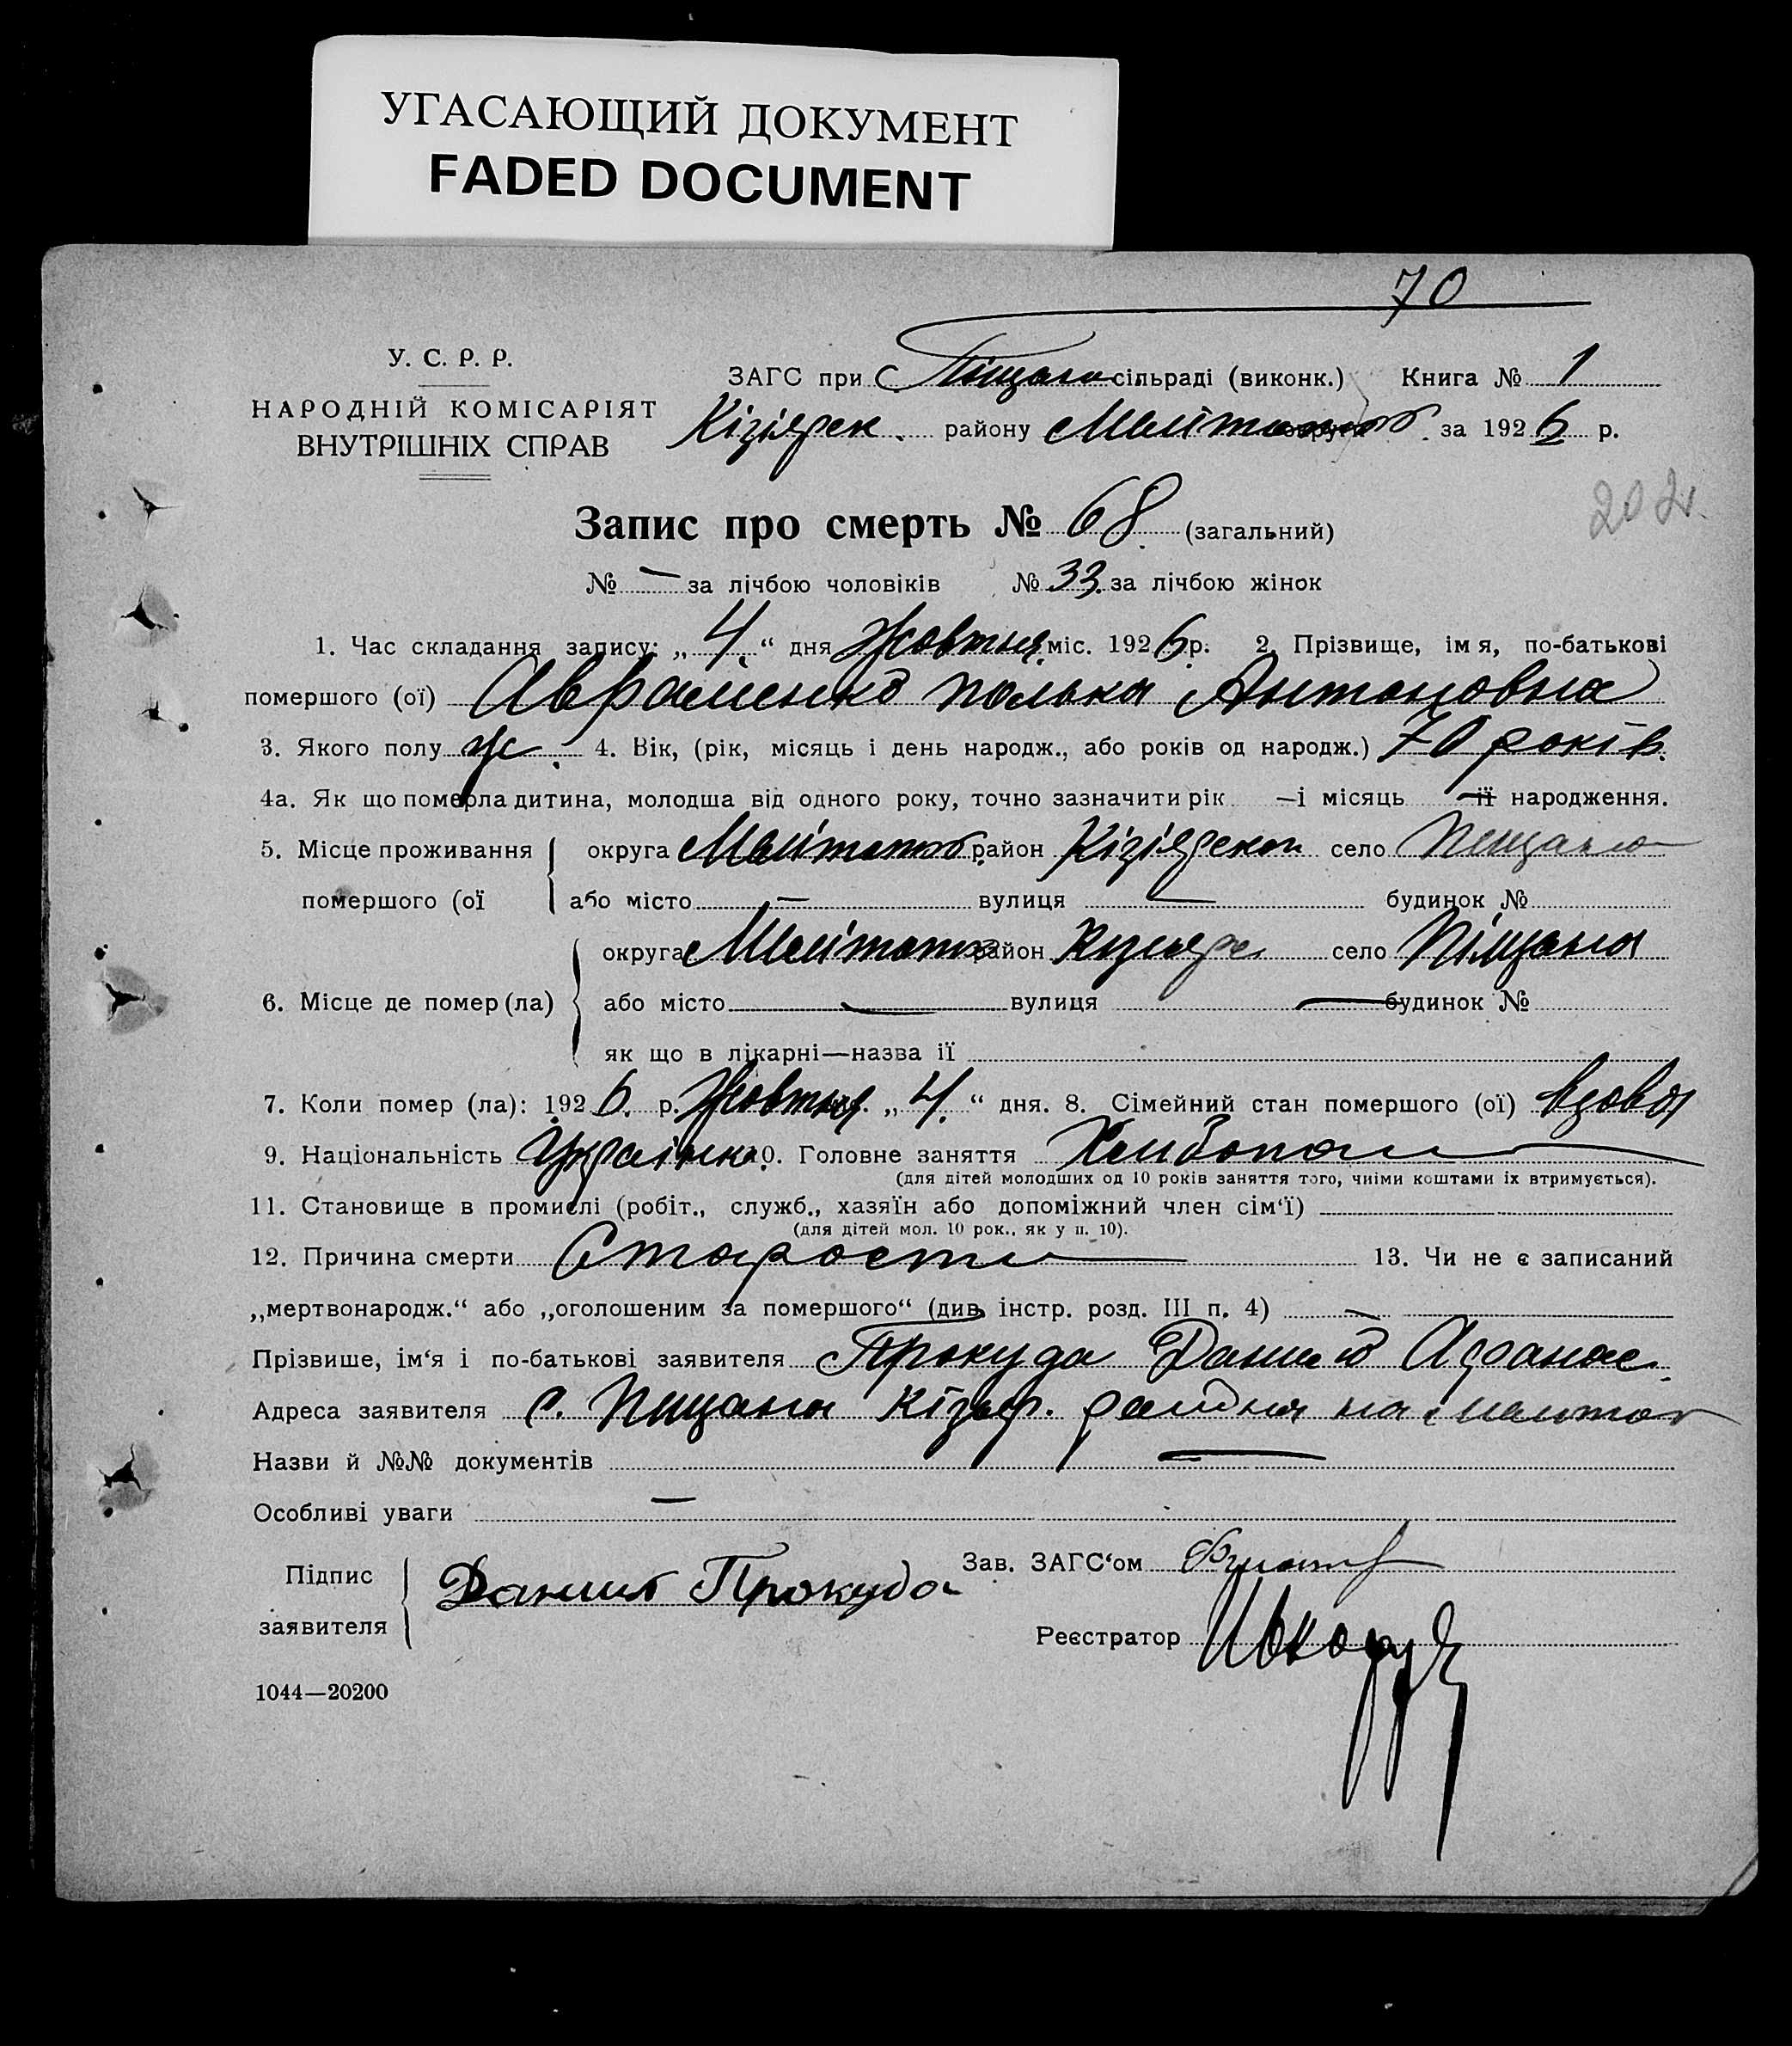 УГАСАЮЩИЙ ДОКУМЕНТ
FADED DOCUMENT
70
У. С. Р. Р.
НАРОДНІЙ КОМІСАРІЯТ
ВНУТРІШНІХ СПРАВ
ЗАГС при с. Піщано сільраді (виконк.) Книга № 1
Кізіярск. району Мелітополь за 1926 р.
202.
Запис про смерть № 68 (загальний)
№ — за лічбою чоловіків № 33. за лічбою жінок
1. Час складання запису: „4.“ дня Жовтня міс. 1926 р. 2. Прізвище, імя, по-батькові
помершого (ої) Авраменко Антоновна
3. Якого полу ж. 4. Вік, (рік, місяць і день народж., або років од народж.) 70 років.
4а. Як що померла дитина, молодша від одного року, точно зазначити рік —і місяць — її народження.
5. Місце проживання округа район село
помершого (ої або місто — вулиця — будинок №
округа район село Піщана
6. Місце де помер (ла) або місто — вулиця — будинок №
як що в лікарні—назва її
7. Коли помер (ла): 1926. р. Жовтня „4.“ дня. 8. Сімейний стан помершого (ої) вдова
9. Національність Українка 10. Головне заняття
(для дітей молодших од 10 років заняття того, чиїми коштами їх втримується).
11. Становище в промислі (робіт., служб., хазяїн або допоміжний член сім‘ї)
(для дітей мол. 10 рок., як у п. 10).
12. Причина смерти Старости 13. Чи не є записаний
„мертвонародж.“ або „оголошеним за помершого“ (див. інстр. розд. III п. 4) —
Прізвише, ім‘я і по-батькові заявителя Прокуда Данило Афанас.
Адреса заявителя с. Пищана Кізіяр. району на
Назви й №№ документів —
Особливі уваги —
Підпис Данил Прокуда Зав. ЗАГС‘ом
заявителя
Реєстратор
1044—20200